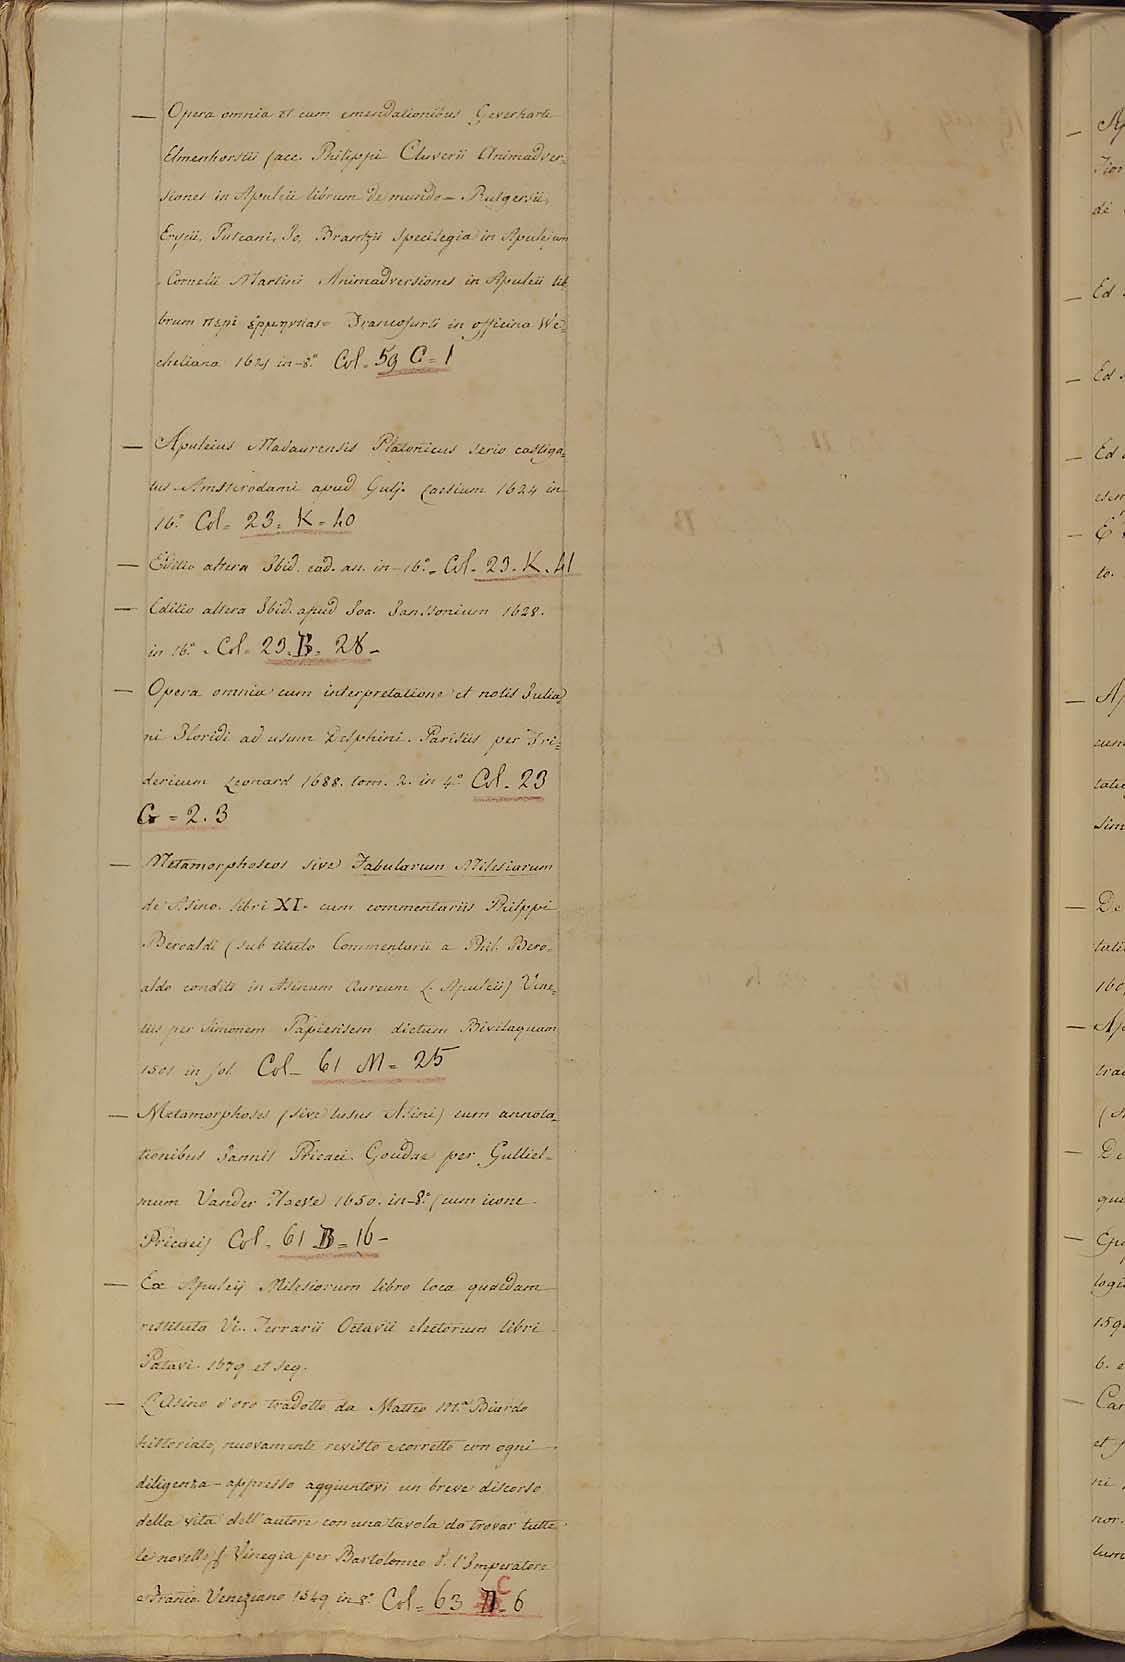 — Opera omnia et cum emendationibus Geverharti
Elmenhorstii (acc. Philippi Cluverii Animadver-
siones in Apuleii librum de mundo = Rutgersii,
Erycii, Puteani, Jo, Brantzii Specilegia in Apulejum
Cornelii Martini Animadversiones in Apuleii lib
brum περι ερμηνιας = Francofurti in officina We=
cheliana 1621 in-8.° Col. 59 C = 1
— Apuleius Madaurensis Platonicus serio castiga=
tus Amsterodami apud Gulj. Caesium 1624 in
16.° Col = 23. K = 40
— Editio altera Ibid. ead. an. in-16.° Col. 23. K. 41
— Editio altera Ibid. apud Joa. Janssonium 1628.
in 16.° Col = 23. B = 28 -
— Opera omnia cum interpretatione et notis Julia=
ni Floridi ad usum Delphini. Parisiis per Fri=
dericum Leonard 1688. tom. 2. in 4.° Col. 23
G = 2. 3
— Metamorphoseos sive Fabularum Milesiarum
de Asino. libri XI. cum commentariis Philppi
Beroaldi (sub titulo Commentarii a Phil. Bero=
aldo conditi in Asinum Aureum L. Apuleii) Vene=
tiis per Simonem Papiensem dictum Bivilaquam
1501 in fol. Col - 61 M = 25
— Metamorphoses (sive lusus Asini) cum annota=
tionibus Jannis Pricaei. Goudae per Gulliel=
mum Vander Haeve 1650. in-8.° (cum icone
Pricaei) Col. 61 B = 16 -
— Ex Apuleij Milesiorum libro loca quaedam
restituta Vi. Ferrarii Octavii electorum libri
Patavi. 1679 et seq.
— L'Asino d'oro tradotto da Matteo M.ª Biardo
historiato, nuovamente revisto e corretto con ogni
diligenza - appresso aggiuntovi un breve discorso
della vita dell'autore con una tavola da trovar tutte
le novelle. Vinegia per Bartolomeo d. l'Imperatore
e Franco. Veneziano 1549 in 8.° Col = 63 C 6
Ap
di
— Ed
— Ed
— Ed
to.
— Ap
cum
sim
— De
— Ap
— De
— Car
et
ni